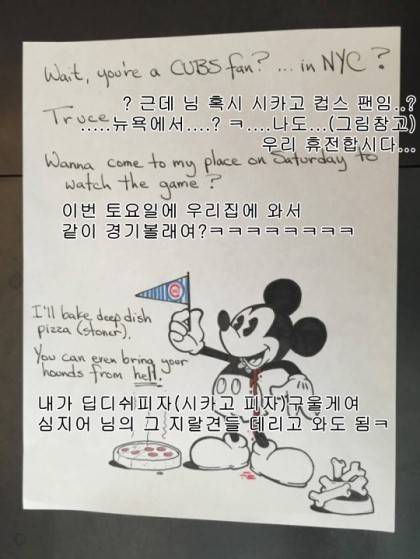 Wait, you're a CUBS fan? ... in NYC?
Truce
? 근데 님 혹시 시카고 컵스 팬임..?
.....뉴욕에서....? ㅋ....나도...(그림참고)
우리 휴전합시다...
Wanna come to my place on Saturday to
watch the game?
이번 토요일에 우리집에 와서
같이 경기볼래여?ㅋㅋㅋㅋㅋㅋㅋㅋ
I'll bake deep dish
pizza (stoner).
You can even bring your
hounds from hell.
내가 딥디쉬피자(시카고 피자)구울게여
심지어 님의 그 지랄견들 데리고 와도 됨ㅋ